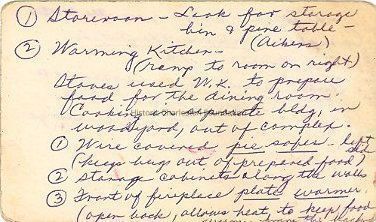 ① Storeroom - Look for storage
bin & pine table
② Warming Kitchen - (Aikens)
(ramp to room on right)
Slaves used W.K. to prepare
food for the dining room.
Cooking in separate bldg. in
woodyard, out of complex.
① Wire covered pie safes - left
(keeps bugs out of prepared food)
② Storage cabinets along the walls
③ Front of fireplace plate warmer
(open back, allows heat to keep food